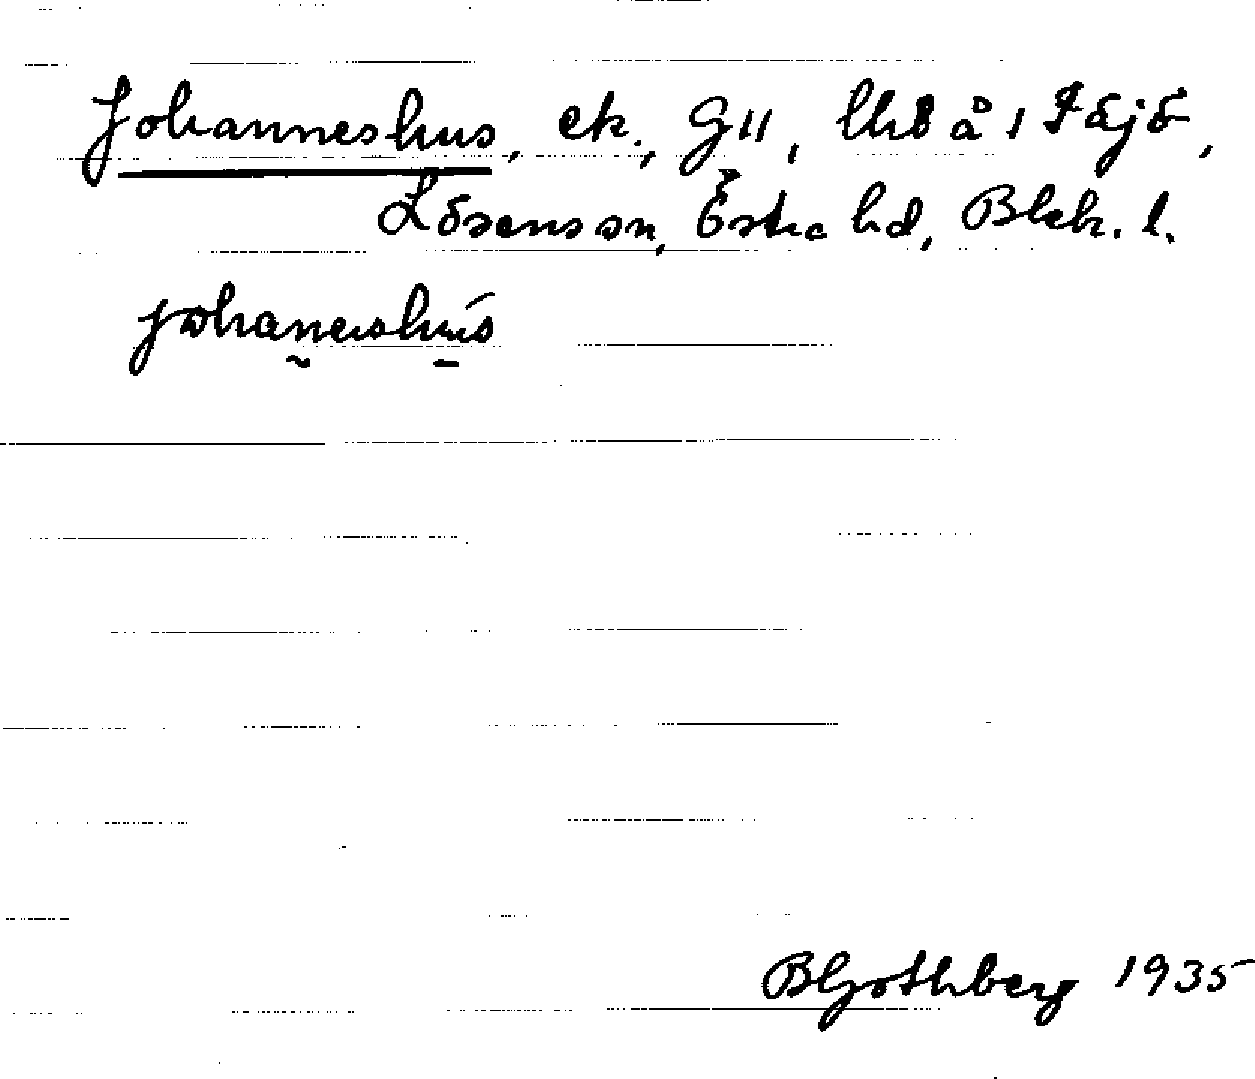 Johanneshus, ek., G11, lhb å 1 Säjö,
Lösens sn, Östra hd, Blek. l.
johaneshús
B Gothberg 1935